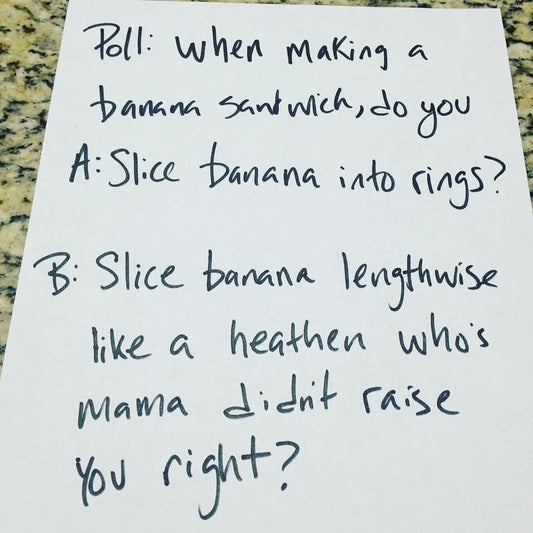 Poll: When making a
banana sandwich, do you
A: Slice banana into rings?
B: Slice banana lengthwise
like a heathen who's
mama didn't raise
you right?